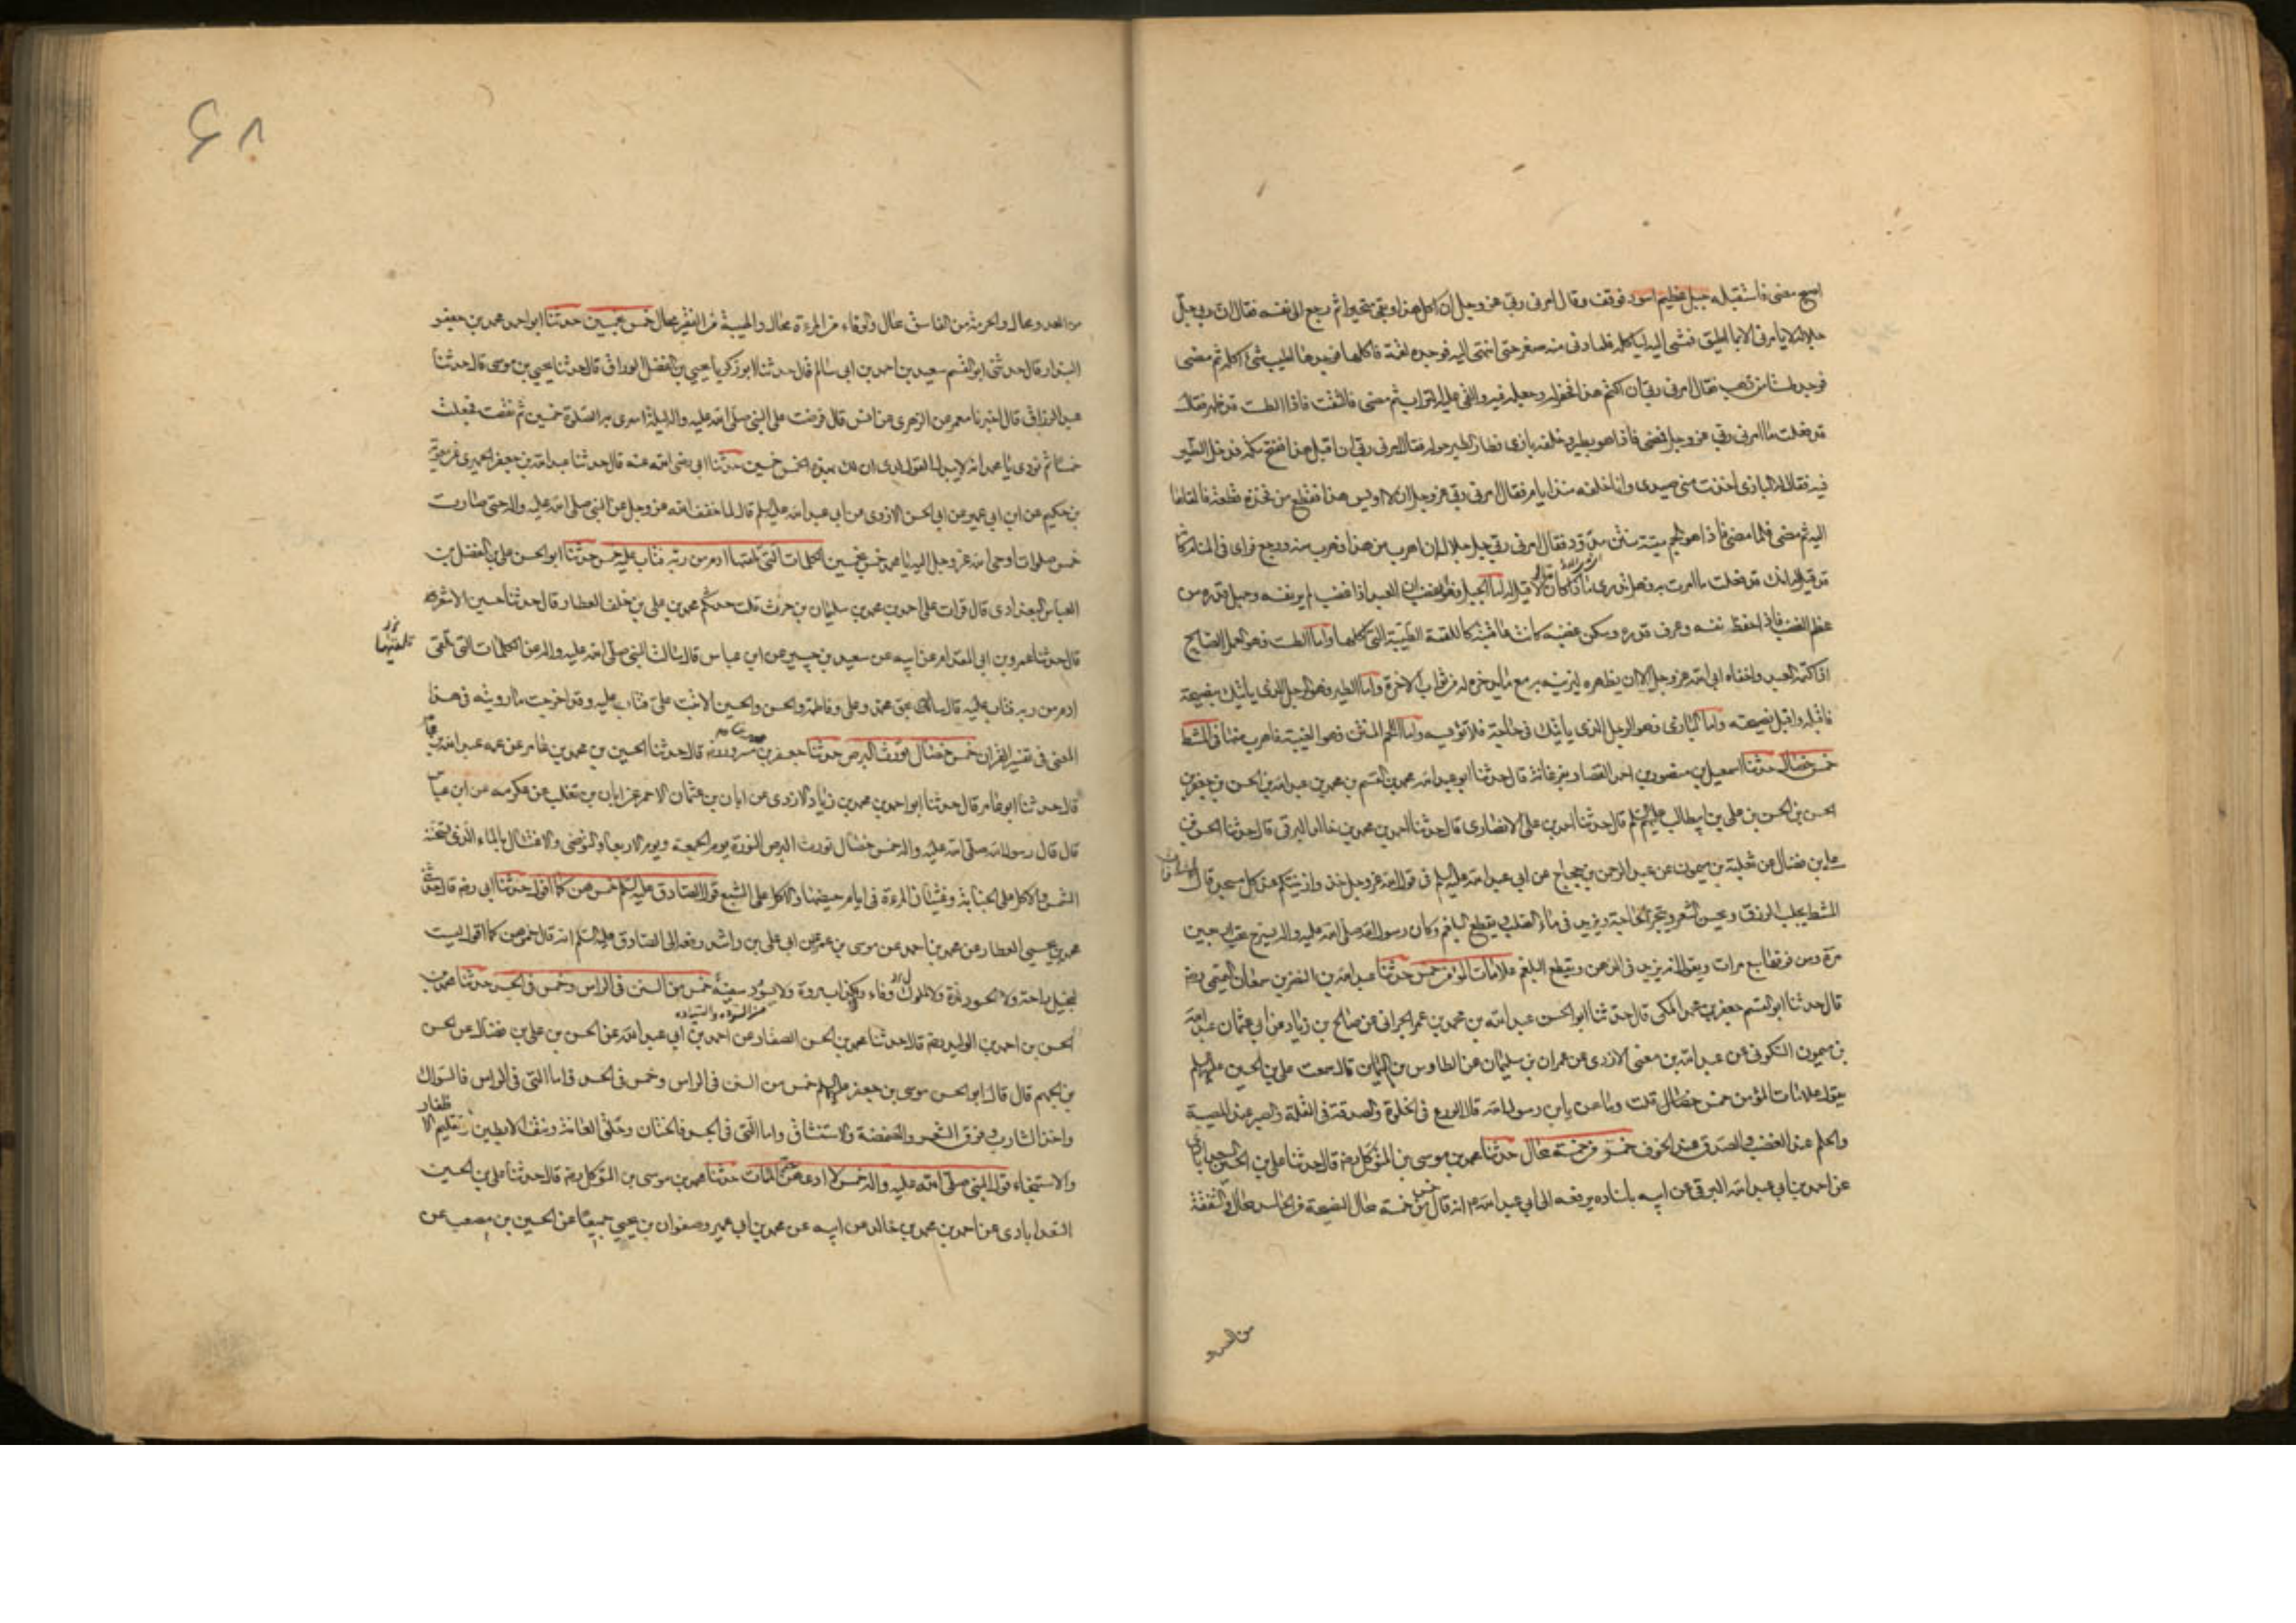 اصبح مضى فاستقبله جبل عظيم اسود فوقف وقال امرنى ربى عز وجل ان اكل هذا وبقى متحيرا ثم رجع الى نفسه فقال ان ربى جل
جلاله لا يامرنى الا بما اطيق فمشى اليه لياكله فلما دنى منه صغر حتى انتهى اليه فوجده لقمة فاكلها فوجدها اطيب شئ اكله ثم مضى
فوجد طشتا من ذهب فقال امرنى ربى ان اكتم هذا فحفر له وجعله فيه والقى عليه التراب ثم مضى فالتفت فاذا الطست قد ظهر فقال
قد فعلت ما امرنى ربى عز وجل فمضى فاذا هو بطير وخلفه بازى فطاف الطير حوله فقال امرنى ربى ان اقبل هذا ففتح كمه فدخل الطير
فيه فقال له البازى اخذت منى صيدى وانا خلفه منذ ايام فقال امرنى ربى عز وجل ان لا اويس هذا فقطع من فخذه قطعة فالقاها
اليه ثم مضى فلما مضى فاذا هو بلحم ميتة منتن مدود فقال امرنى ربى جل جلاله ان اهرب من هذا فهرب منه ورجع فراى فى المنام كانه
قد قيل له انك قد فعلت ما امرت به فهل تدرى ماذا كان قال لا قيل له اما الجبل فهو الغضب ان العبد اذا غضب لم ير نفسه وجهل قدره من
عظم الغضب فاذا حفظ نفسه وعرف قدره وسكن غضبه كانت عاقبته كاللقمة الطيبة التى اكلها واما الطست فهو العمل الصالح
اذا كتمه العبد واخفاه ابى الله عز وجل الا ان يظهره ليزينه به مع ما يدخر له من ثواب الاخرة واما الطير فهو الرجل الذى ياتيك بنصيحة
فاقبله واقبل نصيحته واما البازى فهو الرجل الذى ياتيك فى حاجة فلا تؤيسه واما اللحم المنتن فهو الغيبة فاهرب منها فى المشط
خمس خصال حدثنا اسمعيل بن منصور بن احمد القصار بفرغانة قال حدثنا ابو عبد الله محمد بن القسم بن محمد بن عبد الله بن الحسن بن جعفر بن
الحسن بن الحسن بن على بن ابيطالب عليهم السلم قال حدثنا احمد بن على الانصارى قال حدثنا احمد بن محمد بن خالد البرقى قال حدثنا الحسن بن
على بن فضال عن ثعلبة بن ميمون عن عبد الرحمن بن حجاج عن ابى عبد الله عليه السلم فى قول الله عز وجل خذوا زينتكم عند كل مسجد قال
المشط يجلب الرزق ويحسن الشعر وينجز الحاجة ويزيد فى ماء الصلب ويقطع البلغم وكان رسول الله صلى الله عليه واله يسرح تحت لحيته اربعين
مرة ومن فوقها سبع مرات ويقول انه يزيد فى الذهن ويقطع البلغم علامات المؤمن خمس حدثنا عبد الله بن النضر بن سمعان التميمى رضه
قال حدثنا ابو القسم جعفر بن محمد المكى قال حدثنا ابو الحسن عبد الله بن محمد بن عمر الحرانى عن صالح بن زياد عن ابى عثمان عبد الله
بن ميمون السكونى عن عبد الله بن معنى الازدى عن عمران بن سليمان عن الطاوس بن اليمان قال سمعت على بن الحسين عليه السلم
يقول علامات المؤمن خمس خصال قلت وما هن يابن رسول الله قال الورع فى الخلوة والصدقة فى القلة والصبر عند المصيبة
والحلم عند الغضب والصدق عند الخوف خمس من خمسة محال حدثنا محمد بن موسى بن المتوكل رضه قال حدثنا على بن الحسين السعدابادى
عن احمد بن ابى عبد الله البرقى عن ابيه باسناده يرفعه الى ابى عبد الله ع انه قال خمس من خمسة محال النصيحة من الحاسد محال والشفقة
من العدو محال والحرمة من الفاسق محال والوفاء من المرءة محال والهيبة من الفقير محال خمس بخمسين حدثنا ابو احمد محمد بن جعفر
البندار قال حدثنى ابو القسم سعيد بن احمد بن ابى سالم قال حدثنا ابو زكريا يحيى بن الفضل الوراق قال حدثنا يحيى بن موسى قال حدثنا
عبد الرزاق قال اخبرنا معمر عن الزهرى عن انس قال فرضت على النبى صلى الله عليه واله ليلة اسرى به الصلوة خمسين ثم نقصت فجعلت
خمسا ثم نودى يا محمد انه لا يبدل القول لدى ان لك بهذه الخمس خمسين حدثنا ابى رضى الله عنه قال حدثنا عبد الله بن جعفر الحميرى عن معوية
بن حكيم عن ابن ابى عمير عن ابى الحسن الازدى عن ابى عبد الله عليه السلم قال لما خفف الله عز وجل عن النبى صلى الله عليه واله حتى صارت
خمس صلوات اوحى الله عز وجل اليه يا محمد خمس بخمسين الكلمات التى تلقتها ادم من ربه فتاب عليه خمس حدثنا ابو الحسن على بن الفضل بن
العباس البغدادى قال قرات على احمد بن محمد بن سليمان بن حرث قلت حدثكم محمد بن على بن خلف العطار قال حدثنا حسين الاشقر
قال حدثنا عمرو بن ابى المقدام عن ابيه عن سعيد بن جبير عن ابن عباس قال سالت النبى صلى الله عليه واله عن الكلمات التى تلقى
ادم من ربه فتاب عليه قال ساله بحق محمد وعلى وفاطمة والحسن والحسين الا تبت على فتاب عليه وقد اخرجت ما رويته فى هذا
المعنى فى تفسير القران خمس خصال تورث البرص حدثنا جعفر بن محمد بن مسرور رضه قال حدثنا الحسين بن محمد بن عامر عن عمه عبد الله بن عامر
قال حدثنا ابو عامر قال حدثنا ابو احمد بن محمد بن زياد الازدى عن ابان بن عثمان الاحمر عن ابان بن تغلب عن عكرمه عن ابن عباس
قال قال رسول الله صلى الله عليه واله خمس خصال تورث البرص النورة يوم الجمعة ويوم الاربعاء والتوضى والاغتسال بالماء الذى تسخنه
الشمس والاكل على الجنابة وغشيان المرءة فى ايام حيضها والاكل على الشبع قول الصادق عليه السلم خمس هن كما اقول حدثنا ابى رضه قال حدثنى
محمد بن يحيى العطار عن محمد بن احمد عن موسى بن عمر عن ابى على بن راشد رفعه الى الصادق عليه السلم انه قال خمس هن كما اقول ليست
لبخيل راحة ولا لحسود لذة ولا لملوك وفاء ولا لكذاب مروة ولا يسود سفيه خمس من السنن فى الراس وخمس فى الجسد حدثنا محمد بن
الحسن بن احمد بن الوليد رضه قال حدثنا محمد بن الحسن الصفار عن احمد بن ابى عبد الله عن الحسن بن على بن فضال عن الحسن
بن الجهم قال قال ابو الحسن موسى بن جعفر عليه السلم خمس من السنن فى الراس وخمس فى الجسد فاما التى فى الراس فالسواك
واخذ الشارب وفرق الشعر والمضمضة والاستنشاق واما التى فى الجسد فالختان وحلق العانة ونتف الابطين وتقليم الاظفار
والاستنجاء قول النبى صلى الله عليه واله خمس لا ادعهن حتى الممات حدثنا محمد بن موسى بن المتوكل رضه قال حدثنا على بن الحسين
السعدابادى عن احمد بن محمد بن خالد عن ابيه عن محمد بن ابى عمير وصفوان بن يحيى جميعا عن الحسين بن مصعب عن
من العدو
٦٨